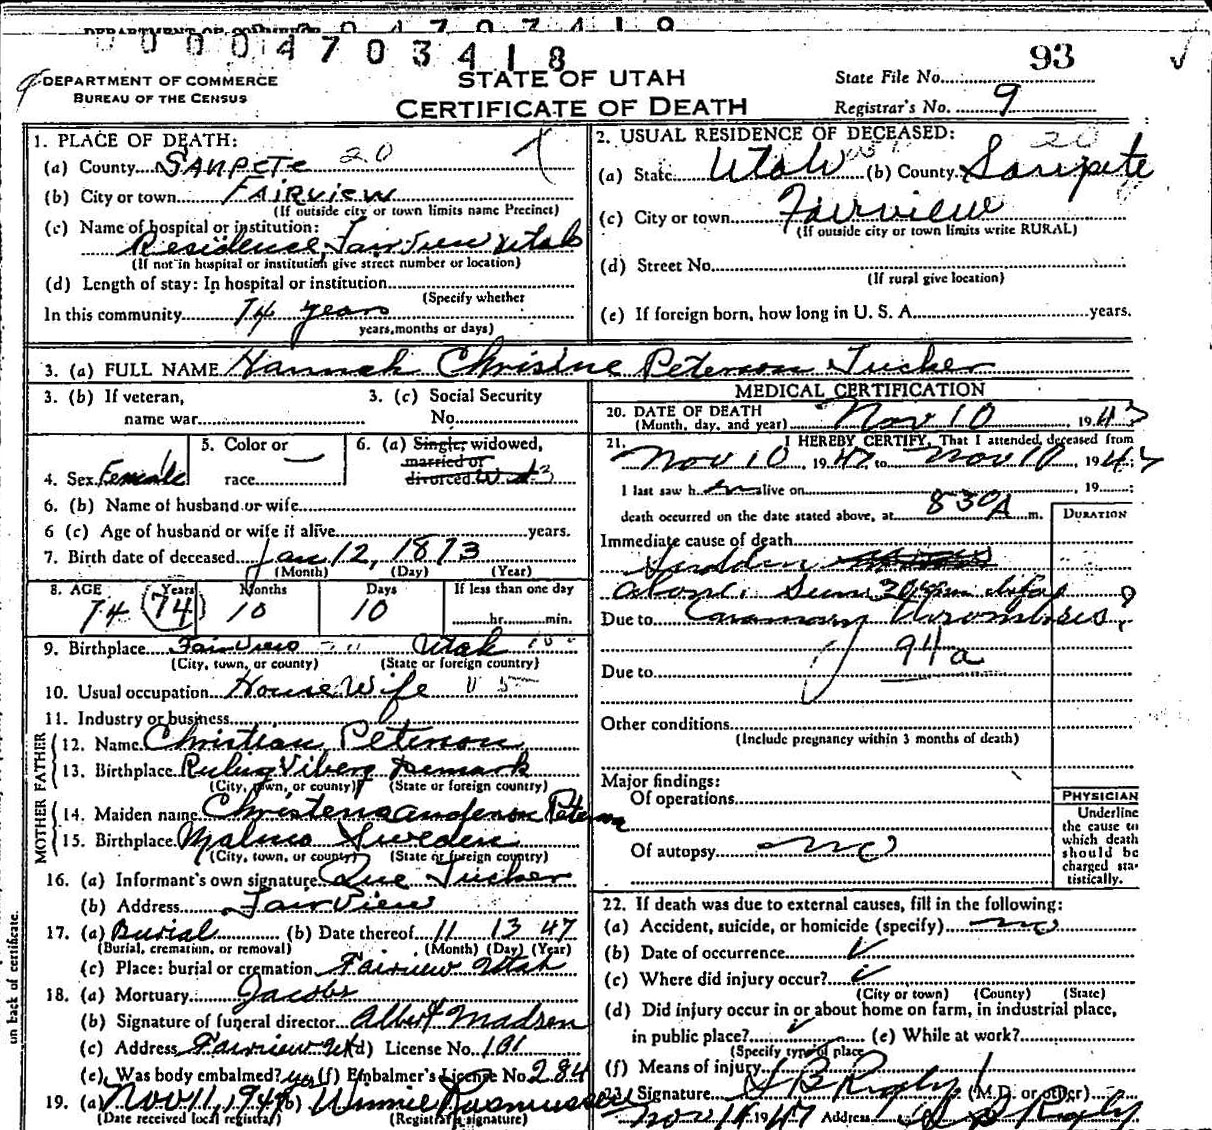 0004703418
93
DEPARTMENT OF COMMERCE
BUREAU OF THE CENSUS
STATE OF UTAH
CERTIFICATE OF DEATH
State File No.
Registrar's No. 9
1. PLACE OF DEATH:
(a) County SANPETE 20
(b) City or town FAIRVIEW
(If outside city or town limits name Precinct)
(c) Name of hospital or institution:
Residence, Fairview Utah
(If not in hospital or institution give street number or location)
(d) Length of stay: In hospital or institution
(Specify whether
In this community 74 years
years, months or days)
2. USUAL RESIDENCE OF DECEASED:
20
(a) State Utah (b) County Sanpete
(c) City or town Fairview
(If outside city or town limits write RURAL)
(d) Street No.
(If rural give location)
(e) If foreign born, how long in U. S. A. years.
3. (a) FULL NAME Hannah Chrisine Peterson Tucker
3. (b) If veteran,
name war
3. (c) Social Security
No.
4. Sex Female
5. Color or
race
6. (a) Single, widowed,
married or
divorced
6. (b) Name of husband or wife
6 (c) Age of husband or wife if alive years.
7. Birth date of deceased Jan 12, 1873
(Month) (Day) (Year)
8. AGE Years Months Days If less than one day
74 (74) 10 10 hr. min.
9. Birthplace Fairview Utah
(City, town, or county) (State or foreign country)
10. Usual occupation House Wife
11. Industry or business
FATHER
12. Name Christian Peterson
13. Birthplace Viberg Denmark
(City, town, or county) (State or foreign country)
MOTHER
14. Maiden name Christena Anderson Peterson
15. Birthplace Malmo Sweden
(City, town, or county) (State or foreign country)
16. (a) Informant's own signature Que Tucker
(b) Address Fairview
17. (a) Burial (b) Date thereof 11 13 47
(Burial, cremation, or removal) (Month) (Day) (Year)
(c) Place: burial or cremation Fairview Utah
18. (a) Mortuary Jacobs
(b) Signature of funeral director Albert Madsen
(c) Address Fairview Ut (d) License No. 101
(e) Was body embalmed? yes (f) Embalmer's License No. 284
19. (a) Nov 11, 1947 (b) Winnie Rasmussen
(Date received local registrar) (Registrar's signature)
MEDICAL CERTIFICATION
20. DATE OF DEATH Nov 10 1947
(Month, day, and year)
21. I HEREBY CERTIFY, That I attended deceased from
Nov 10, 1947 to Nov 10, 1947;
I last saw h alive on , 19 ;
death occurred on the date stated above, at 8 30 A m.
DURATION
Immediate cause of death
Sudden
alone. Seen 20 min before
Due to Coronary Thrombosis ?
94a
Due to
Other conditions
(Include pregnancy within 3 months of death)
Major findings:
Of operations
Of autopsy no
PHYSICIAN
Underline
the cause to
which death
should be
charged sta-
tistically.
22. If death was due to external causes, fill in the following:
(a) Accident, suicide, or homicide (specify) no
(b) Date of occurrence
(c) Where did injury occur?
(City or town) (County) (State)
(d) Did injury occur in or about home on farm, in industrial place,
in public place? (e) While at work?
(Specify type of place
(f) Means of injury
23. Signature S B Rigby (M.D. or other)
Nov 11 1947 Address
on back of certificate.